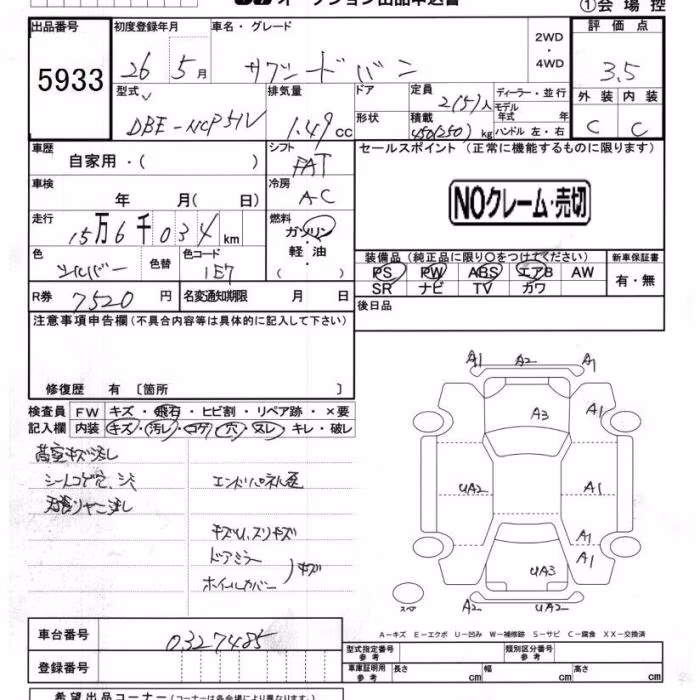 オークション出品申込書
①会場控
出品番号 初度登録年月 車名・グレード 2WD・4WD 評価点
5933 26年5月 サクシードバン 3.5
型式 排気量 ドア 定員 2(5)人 ディーラー・並行 外装 内装
DBE-NCP51V 1.49cc 形状 積載 450(250)kg モデル年式 年 ハンドル 左・右 C C
車歴 シフト セールスポイント (正常に機能するものに限ります)
自家用・( ) FAT
車検 冷房 NOクレーム・売切
年 月( 日) AC
走行 15万6千034km 燃料 ガソリン・軽油・( )
色 シルバー 色替 色コード 1E7
装備品 (純正品に限り○をつけてください) 新車保証書
PS PW ABS エアB AW 有・無
SR ナビ TV カワ
R券 7520円 名変通知期限 月 日 後日品
注意事項申告欄(不具合内容等は具体的に記入して下さい)
修復歴 有 〔箇所 〕
検査員 FW キズ・飛石・ヒビ割・リペア跡・×要
記入欄 内装 キズ・汚レ・コゲ・穴・スレ・キレ・破レ
荷室キズ汚レ
シートコゲ穴、シミ エンドパネル歪
天張リヤニ汚レ
キズU、スリキズ
ドアミラー
ホイールカバー )キズ
A1 A2 A1
A3 A1
UA2 A1
A1
UA3 A1
スペア A2 UA2
A-キズ E-エクボ U-凹み W-補修跡 S-サビ C-腐食 XX-交換済
車台番号 0327485
型式指定番号 参考 類別区分番号 参考
登録番号
車庫証明用 参考 長さ cm 幅 cm 高さ cm
希望出品コーナー (コーナーは各会場により異なります)